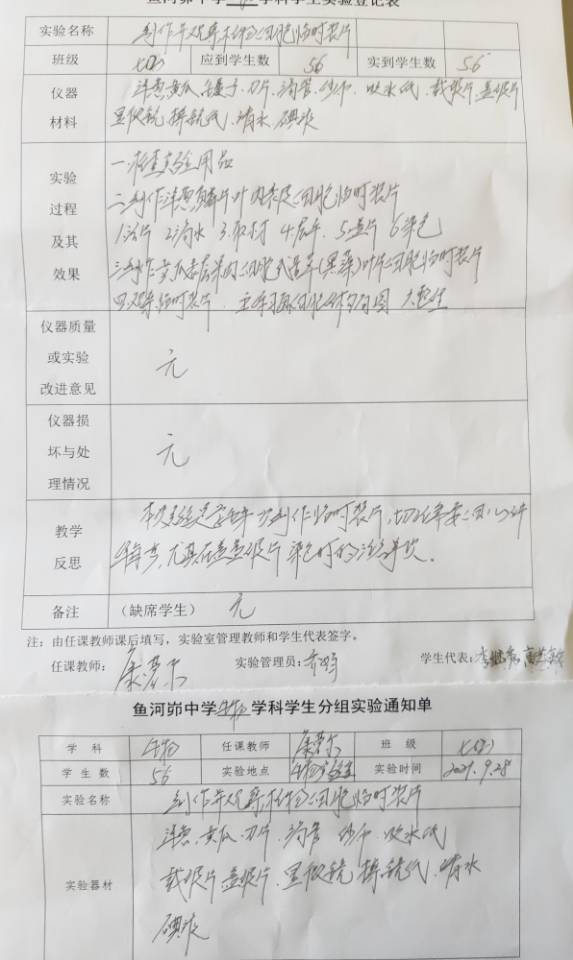 鱼河峁中学生物学科学生实验登记表
实验名称 制作并观察植物细胞临时装片
班级 应到学生数 56 实到学生数 56
仪器 洋葱、黄瓜、镊子、刀片、滴管、纱布、吸水纸、载玻片、盖玻片
材料 显微镜、擦镜纸、清水、碘液
实验 一、检查实验用品
过程 二、制作洋葱鳞片叶内表皮细胞临时装片
及其 1.涂片 2.滴水 3.取材 4.展平 5.盖片 6.染色
效果 三、制作黄瓜表层果肉细胞或黑藻叶片细胞临时装片
四、观察临时装片
仪器质量
或实验 无
改进意见
仪器损
坏与处 无
理情况
教学 本次实验是学生第一次制作临时装片,
反思 尤其在盖盖玻片 染色时的注意事项.
备注 (缺席学生) 无
注:由任课教师课后填写,实验室管理教师和学生代表签字。
任课教师: 实验管理员: 学生代表:
鱼河峁中学生物学科学生分组实验通知单
学 科 生物 任课教师 班 级
学 生 数 56 实验地点 生物实验室 实验时间 2021.9.28
实验名称 制作并观察植物细胞临时装片
洋葱、黄瓜、刀片、滴管 纱布、吸水纸
实验器材 载玻片、盖玻片、显微镜、擦镜纸、清水
碘液